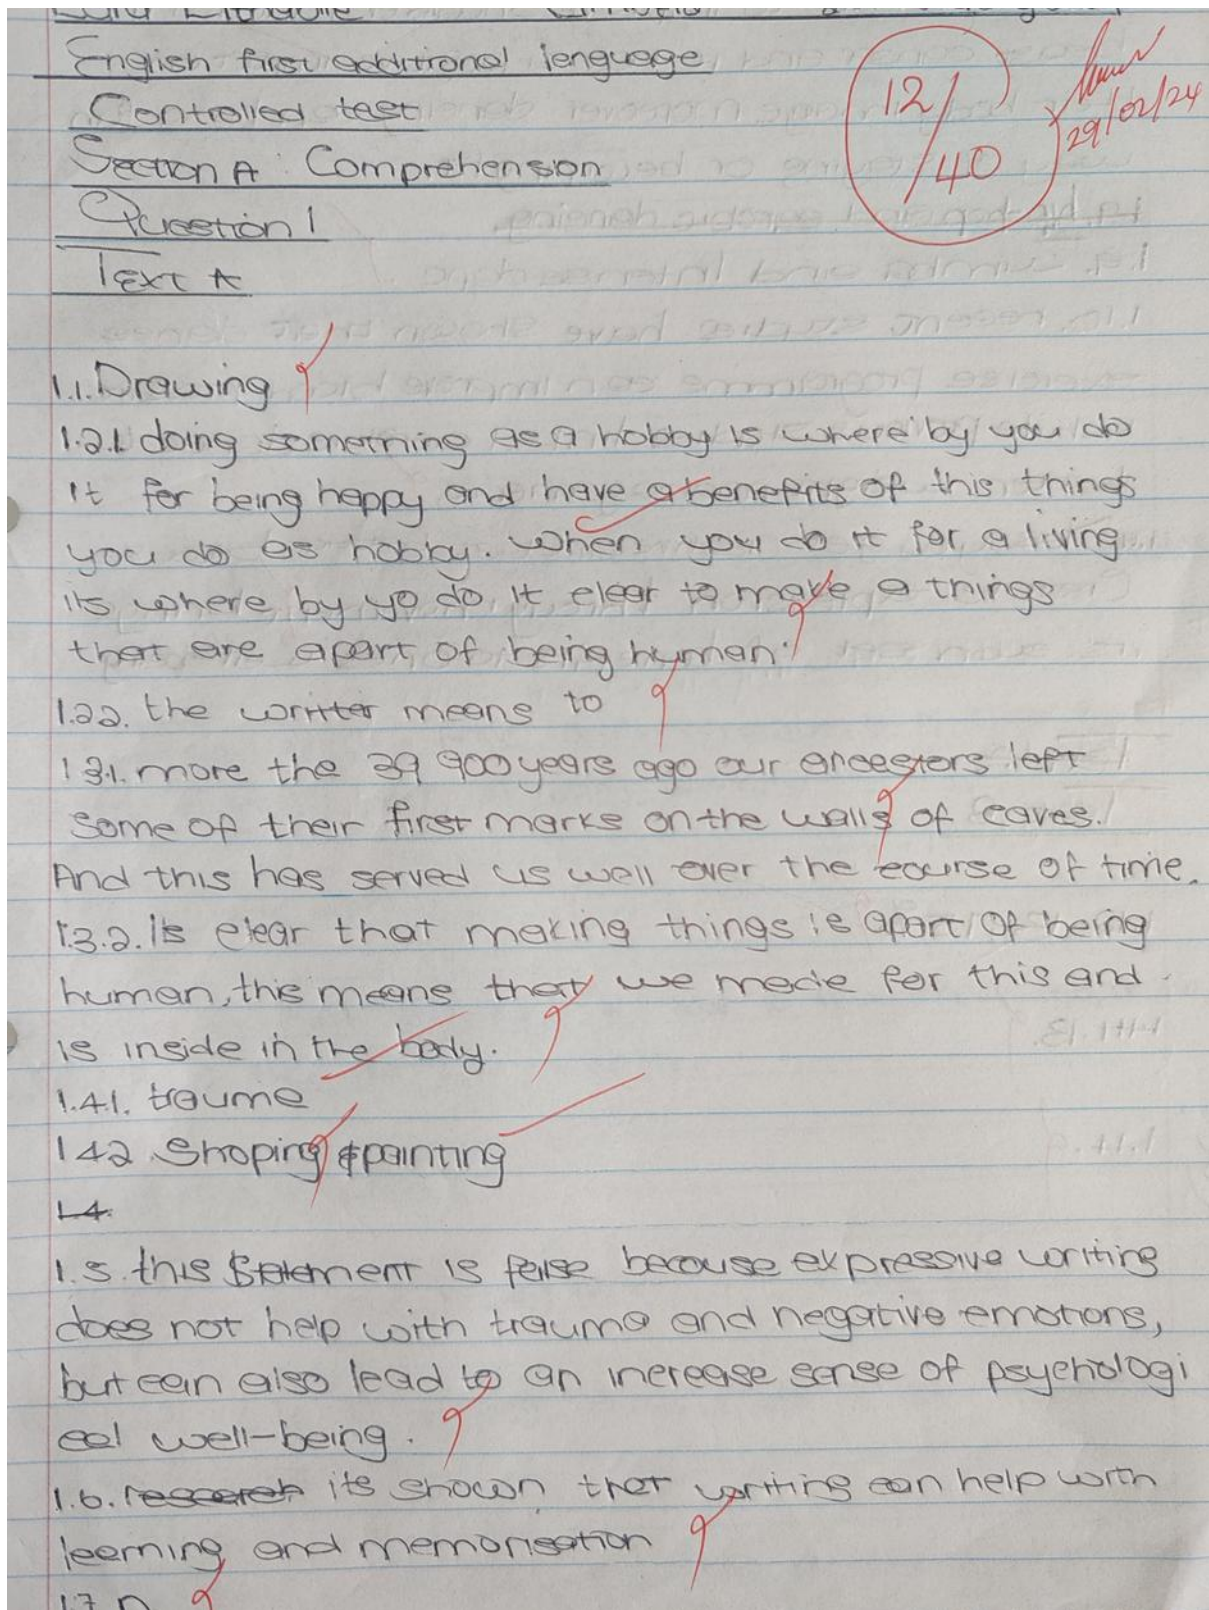 English first additional lenguage
Controlled test
Section A: Comprehension
Question 1
Text A
12/40
29/02/24
1.1. Drawing
1.2.1 doing something as a hobby is where by you do
it for being happy and have a benefits of this things
you do as hobby. When you do it for a living
its where by yo do it clear to make a things
that are apart of being human.
1.2.2. the writter means to
1.3.1. more the 39 900 years ago our ancestors left
some of their first marks on the walls of caves.
And this has served us well over the course of time.
1.3.2. Is clear that making things is apart of being
human, this means that we made for this and
is inside in the body.
1.4.1. traume
1.4.2 Shoping & painting
1.4.
1.5. this statement is false because expressive writing
does not help with trauma and negative emotions,
but can also lead to an increase sense of psychologi
cal well-being.
1.6. research its shown that writing can help with
learning and memorisation
1.7 D